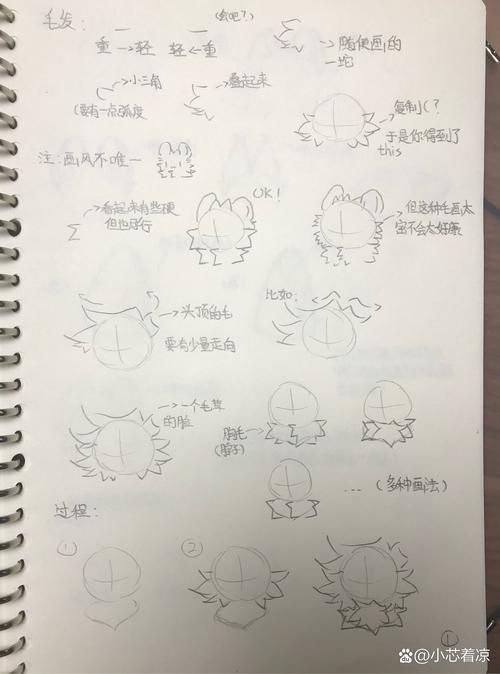 毛发：
(会吧？)
重→轻 轻←重
→随便画的
一坨
→小三角
(要有一点弧度
→叠起来
→复制(？
于是你得到了
this
注：画风不唯一
OK！
→看起来有些硬
但也可行
→但这种毛画太
密不会太好康
→头顶的毛
要有少量走向
比如：
→一个毛茸
的脸
胸毛→
(脖子)
…(多种画法)
过程：
①
②
①
百度@小芯着凉